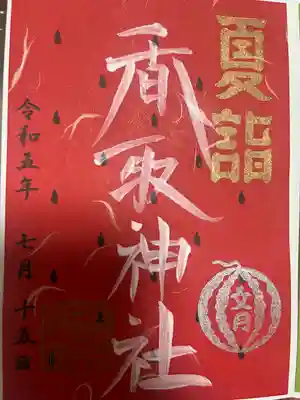 夏詣
香取神社
文月
令和五年 七月 十五日